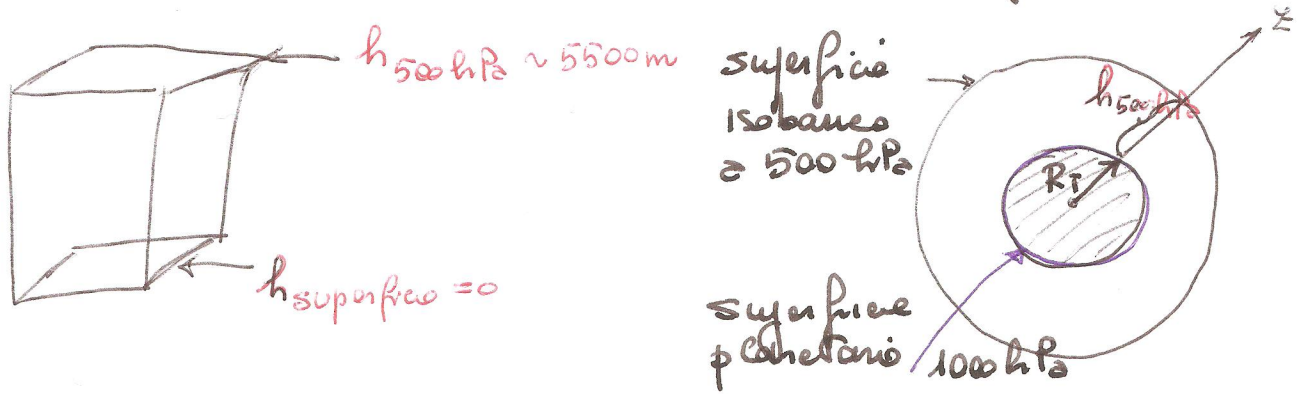 h500hPa ~ 5500m
hsuperficie = 0
superficie
isobarica
a 500 hPa
h500hPa
z
RT
superficie
planetaria 1000hPa